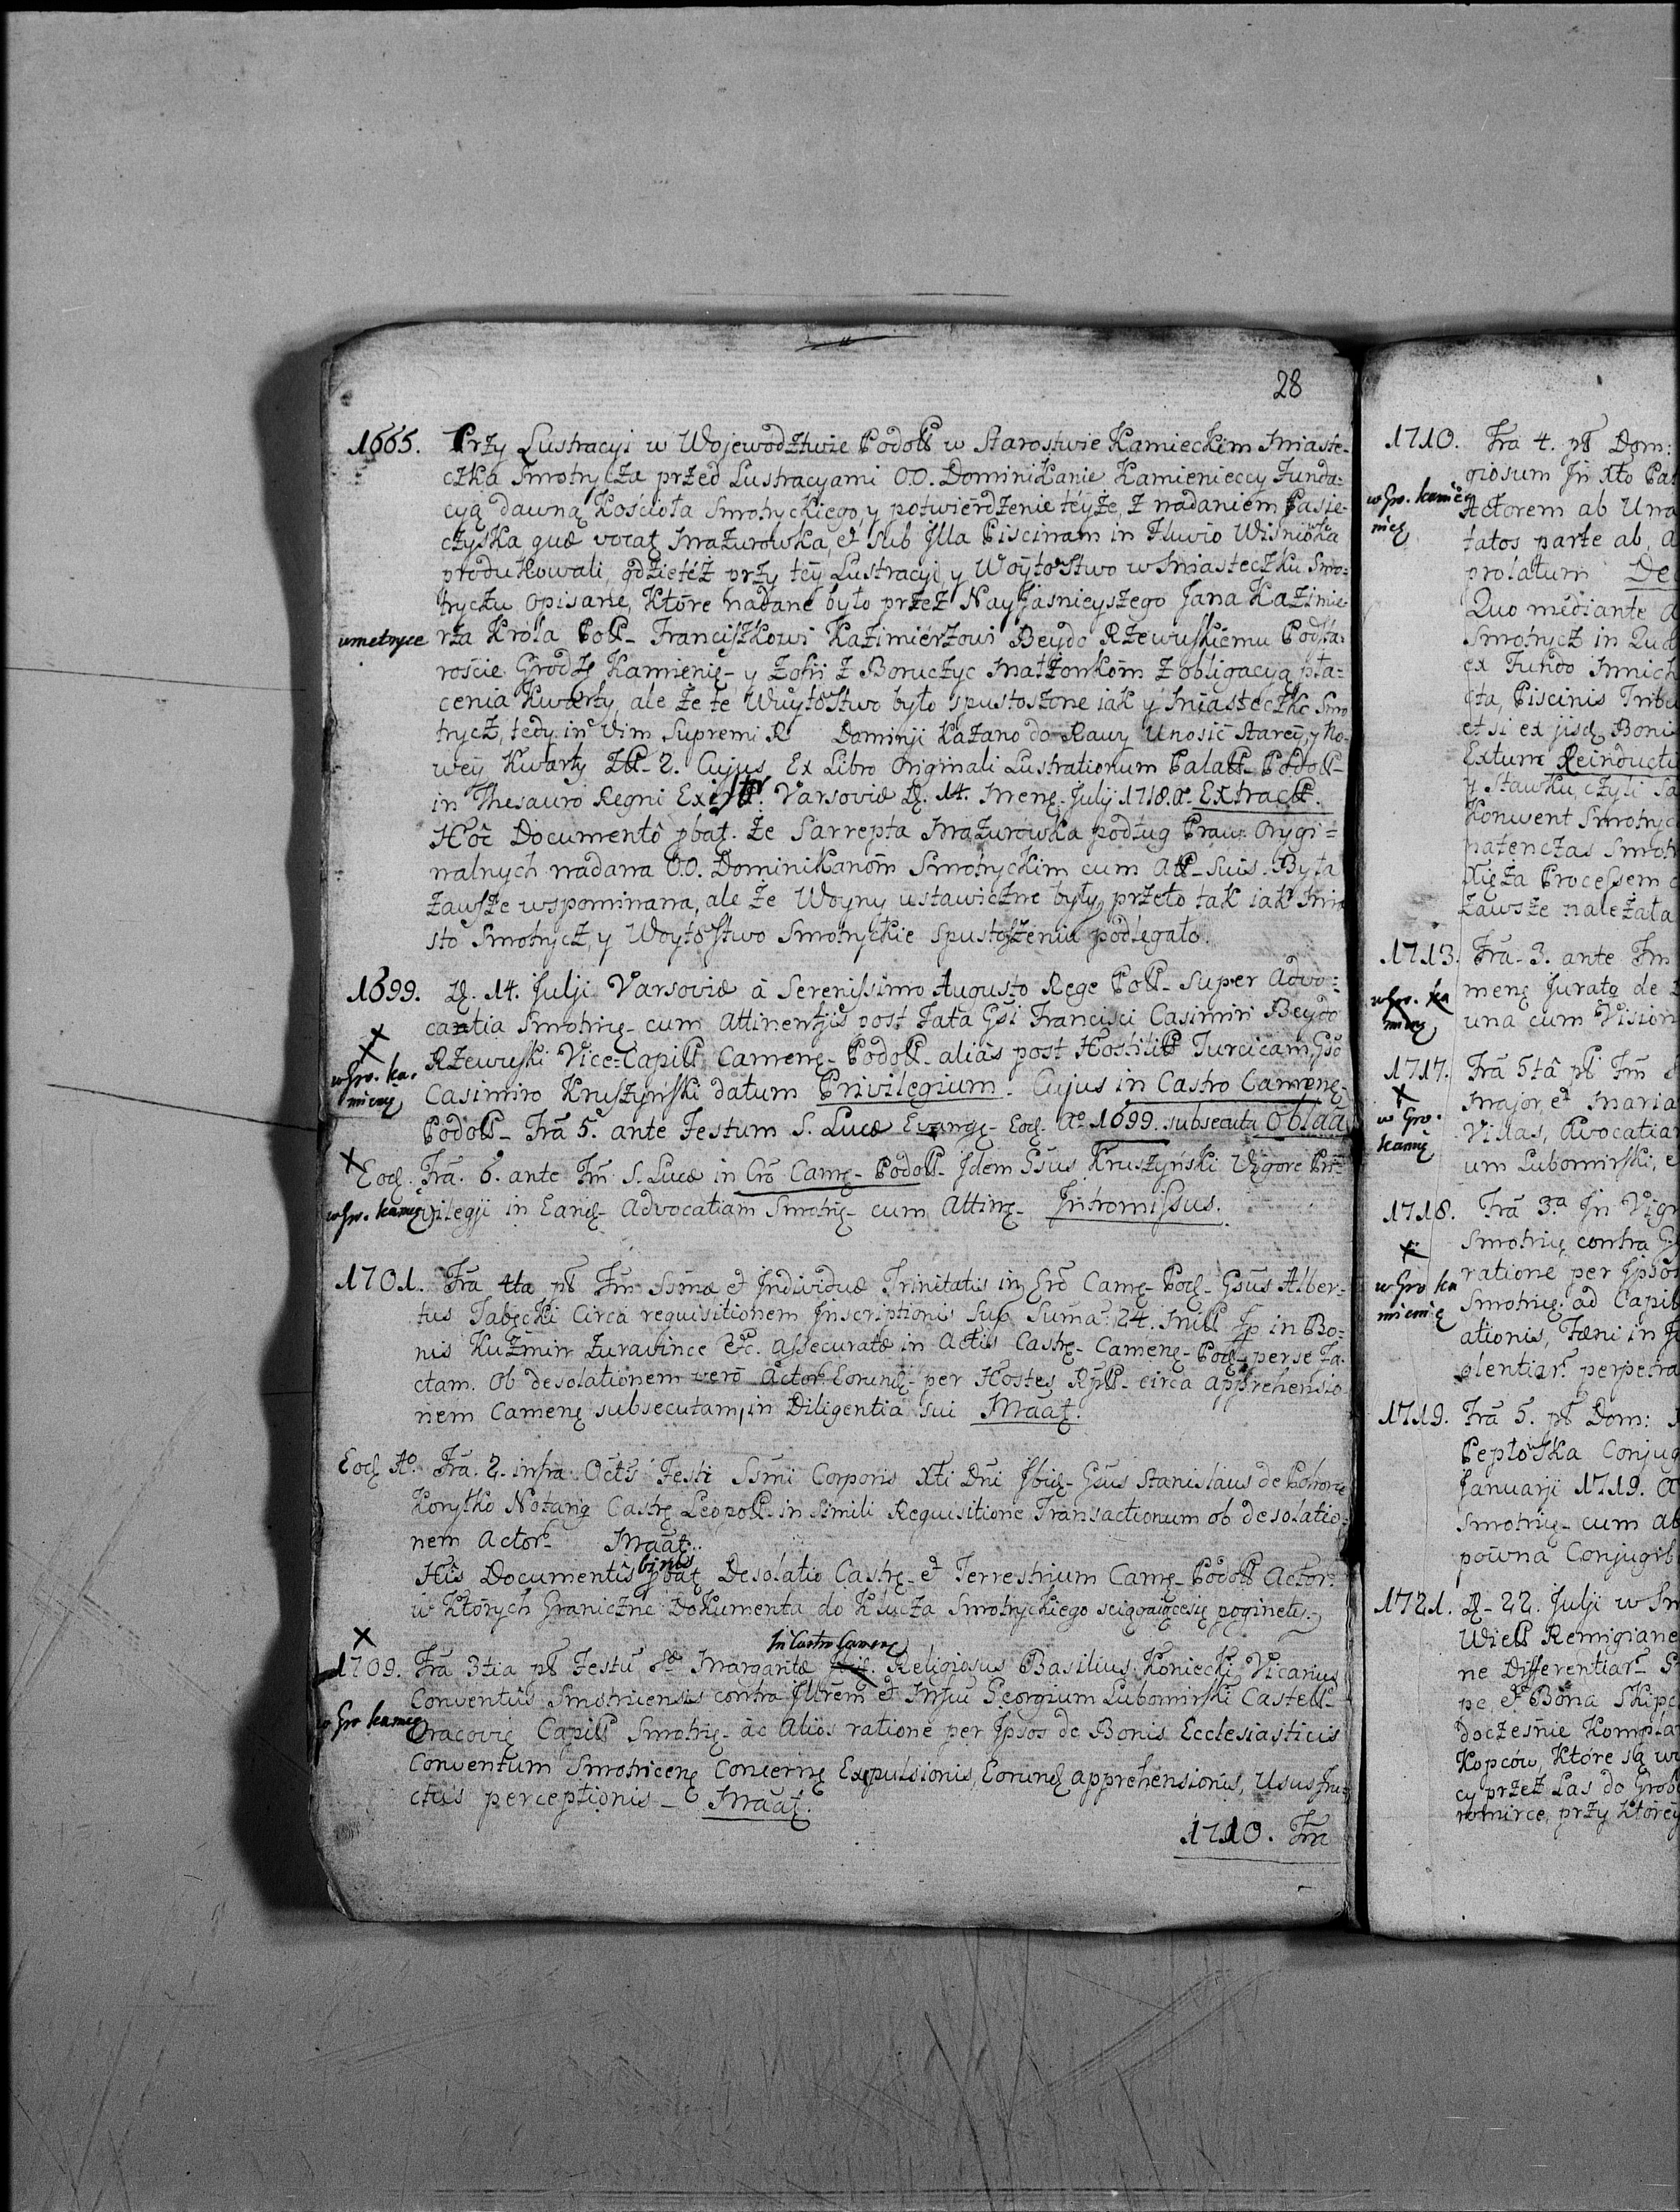 28
1665. Przy Lustracyi w Wojewodztwie Podoll w Starostwie Kamieckim Miaste-
czka Smotrycza przed Lustracyami OO. Dominikanie Kamienieccy Funda-
cyą dawną Kościoła Smotryckiego, y potwierdzenie teyże, z nadaniem Pasie-
czyska quæ vocaţ Mazurowka, et sub Illa Piscinam in Fluvio Wisniöka
produkowali, gdzieteż przy tey Lustracyi y Woytostwo w Miasteczku Smo-
tryczu opisane, które nadane było przez Nayjasnieyszego Jana Kazimie-
wmetryce rza Króla Poll- Franciszkowi Kazimiérzowi Beydo Rzewuskiemu Podsta-
roście Grodzę Kamienię- y Zofii z Boruczyc Małżonkom z obligacyą pła-
cenia Kwarty, ale że te Wuytostwo było spustoszone iak y Miasteczko Smo
trycz, tedy in Vim Supremi R Dominji kazano do Rawy unosić Starey, y No-
wey Kwarty Zll- 2. Cujus Ex Libro Originali Lustrationum Palatt- Podoll-
in Thesauro Regni Varsoviæ D. 14. Menę- Julij 1718. a. Extractt.
Hoc Documentô pbaţ. że Sarrepta Mazurowka podług Praw Orygi=
nalnych nadana OO. Dominikanóm Smotryckim cum Att- Suis. Była
zawsze wspominana, ale że Woyny ustawiczne były, przeto tak iak Mia
sto Smotrycz, y Woytostwo Smotryckie spustoszeniu podlegało.
1699. D. 14. Julji Varsoviæ à Serenissimo Augusto Rege Poll- super Advo-
catia Smotrię- cum Attinentjis post Fata Gsi Francisci Casimiri Beydo
Rzewuski Vice-Capitt Camenę- Podoll- aliàs post Hostilitt Turcicam, Gso
w Gro. ka-
mieņ
Casimiro Kruszyński datum Privilegium. Cujus in Castro Camenę-
Podoll- Fra 5. ante Festum S. Lucæ Evangę- Eoḑ. Aº 1699. subsecuta Oblata
Eoḑ. Fra. 6. ante Fm S. Lucæ in Crô Camę- Podoll- Idem Gsus Kruszyński Vigore Pri-
w Gr. kamię vilegji in Eanḑ- Advocatiam Smotrię- cum Attinę- Intromissus.
1701. Fra 4ta pt Fm Ssmæ et Individuæ Trinitatis in Grô Camę- Poḑ- Gsus Alber-
tus Tabęcki Circa requisitionem Inscriptionis Sup Suma 24. Mill Fp in Bo-
nis Kuzmin Zuravince &c. assecuratæ in Actis Castrę- Camenę- Poḑ- per se fa-
ctam. Ob desolationem verô Actor Eorunḑ- per Hostes Rpll- circa apprehensio
nem Camenę subsecutam, in Diligentia sui Maaţ.
Eoḑ Aº. Fra. 2. infra Octs Festi Ssmi Corporis Xti Dni Ibiḑ- Gsus Stanislaus de Pohorię
Korytko Notariş Castrę Leopoll- in Simili Requisitione Transactionum ob desolatio-
nem Actor- Maaţ.
binis
His Documentis pbaţ Desolatio Castrę- et Terrestrium Camę- Podoll Actor-
w których Graniczne Dokumenta do Klucza Smotryckiego sciągaiącesię poginęły.
In Castro Camenę
1709. Fra 3tia pt Festu Sæ Margaritæ Religiosus Basilius Koniecki, Vicarius
Conventus Smotricensis contra Illrem et Mfcu Georgium Lubomirski Castell-
w Gro kamieņ
Cracovię Capitt Smotrię- ac Alios ratione per Ipsos de Bonis Ecclesiasticis
Conventum Smotricenę Concernę Expulsionis, Eorunḑ apprehensionis, Usus fru-
ctus perceptionis- Maaţ.
1710. Fra
1710. Fra 4. pt Dom:
giosum In Xto Pa
w Gro. kamie
nieç
Actorem ab Una
tatos parte ab, a
prolatum De
Quo mediante
Smotrycz in Qua
ex Fundo Mnich
cta, Piscinis Tribu
et si ex jisḑ Boni
Extum Reinducti
y Stawku, czyli
Konwent Smotryc
natenczas Smotr
Xięża Processem
zawsze należała
1713. Fra- 3. ante Fm
menę Jurato de
una cum Vision
1717. Fra 5tâ pt Fm
w Gro.
kamię
Major, et Maria
Villas, Avocatia
um Lubomirski, e
1718. Fra 3.a In Vigi
Smotrię contra
w Gro ka
mienię
ratione per Ipsos
Smotrię- ad Capit
ationis, Fæni in
olentiar perpetra
1719. Fra 5. pt Dom:
Peptowska Conjug
Januarji 1719. a
Smotrię- cum at
powna Conjugib
1721. D- 22. Julji w Sm
Wiell Remigiane
ne Differentiar-
pe, et Bona Skipc
docześnie Kompla
Kopców, które są
cy przez Las do Grob
romirce, przy którey